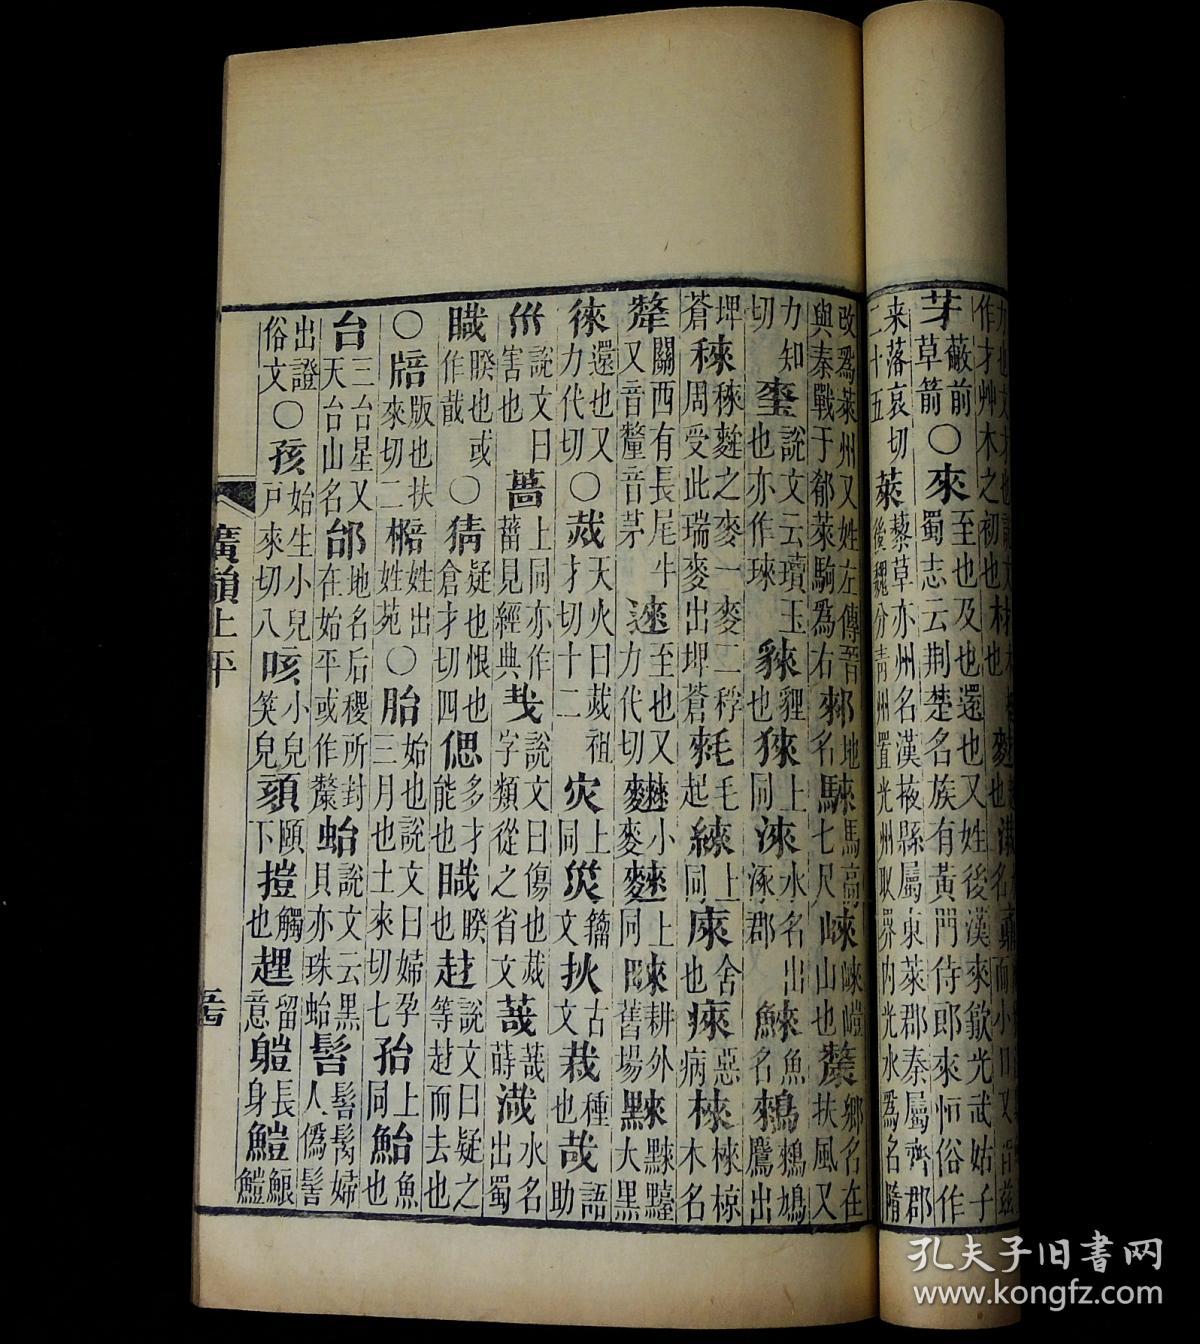 作才艸木之初也 材
芽 草箭 蔽前 ○來 至也及也還也又姓後漢來歙光武姑子 蜀志云荆楚名族有黃門侍郎來恒俗作
来落哀切二十五 萊 藜草亦州名漢掖縣屬東萊郡秦屬齊郡 後魏分青州置光州取界內光水爲名隋
改爲萊州又姓左傳晉 與秦戰于郁萊駒爲右 郲 地名 騋 馬高七尺 崍 崍嵦山也 斄 鄉名在扶風又
力知切 㻍 說文云瓊玉也亦作琜 貅 貍也 猍 上同 淶 水名出涿郡 鯠 魚名 鶆 鶆鳩鷹出
埤蒼 䅘 䅘麰之麥一麥二稃周受此瑞麥出埤蒼 㲚 毛起 練 上同 庲 舍也 㾢 惡病 棶 棶椋木名
犛 關西有長尾牛又音釐音茅 逨 至也又力代切 麳 小麥 麳 上同 䀳 耕外舊場 䵆 䵆䵴大黑
徠 還也又力代切 ○烖 天火曰烖祖才切十二 灾 上同 災 籀文 㧡 古文 栽 種也 哉 語助
巛 說文曰害也 葘 上同亦作葘見經典 㦲 說文曰傷也烖字類從之省文 䔂 䔂蒔 渽 水名出蜀
䁱 睽也或作䣬 ○猜 疑也恨也倉才切四 偲 多才能也 䁱 睽也 䞗 說文曰疑之等䞗而去也
○㾦 版也扶來切二 棓 姓出姓苑 ○胎 始也說文曰婦孕三月也土來切七 孡 上同 鮐 魚也
台 三台星又天台山名 邰 地名后稷所封在始平或作斄 蛤 說文云黑貝亦珠蛤 䯚 䯚髩婦人僞髻
出證俗文 ○孩 始生小兒戶來切八 咳 小兒笑皃 頦 頤下 㨟 觸也 趕 留意 䠽 長身 鱧 鯷鱧
廣韻上平
五古
孔夫子旧書网
www.kongfz.com